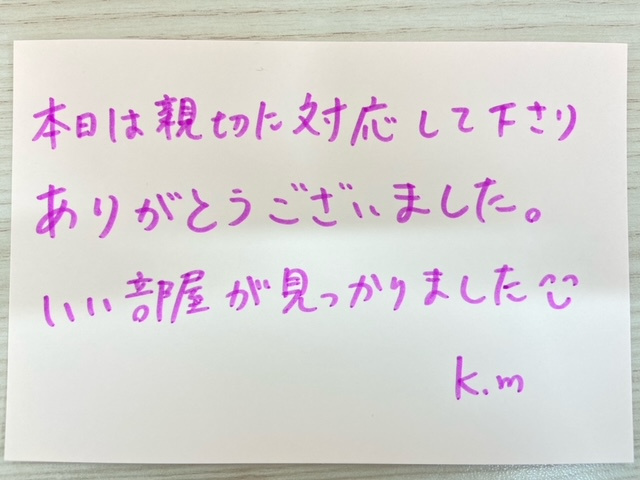 本日は親切に対応して下さり
ありがとうございました。
いい部屋が見つかりました
k.m